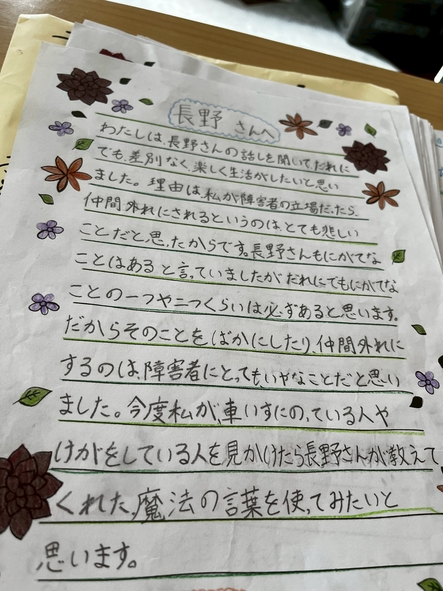 長野 さんへ
わたしは、長野さんの話しを聞いて、だれに
でも、差別なく、楽しく生活がしたいと思い
ました。理由は、私が障害者の立場だったら、
仲間外れにされるというのは、とても悲しい
ことだと思ったからです。長野さんもにがてな
ことはあると言っていましたが、だれにでもにがてな
ことの一つや二つくらいは必ずあると思います。
だからそのことをばかにしたり、仲間外れに
するのは、障害者にとっても、いやなことだと思い
ました。今度私が、車いすにのっている人や
けがをしている人を見かけたら長野さんが教えて
くれた、魔法の言葉を使ってみたいと
思います。